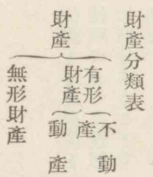 財產分類表
財產
有形財產
不動產
動產
無形財產